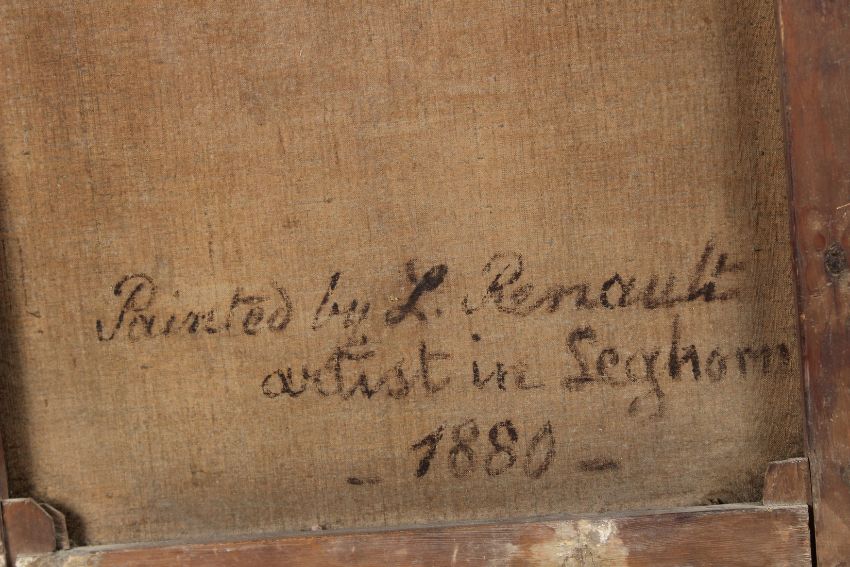 Painted by L. Renault
artist in Leghorn
- 1880 -